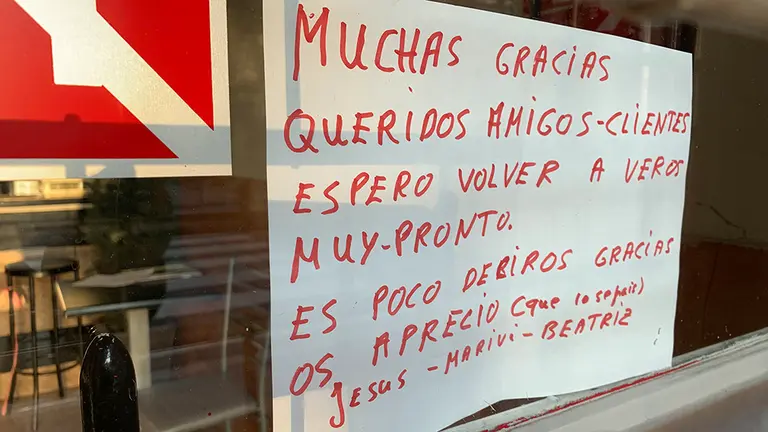 MUCHAS GRACIAS
QUERIDOS AMIGOS-CLIENTES
ESPERO VOLVER A VEROS
MUY-PRONTO.
ES POCO DEBIROS GRACIAS
OS APRECIO (que lo sepais)
JESUS - MARIVI - BEATRIZ